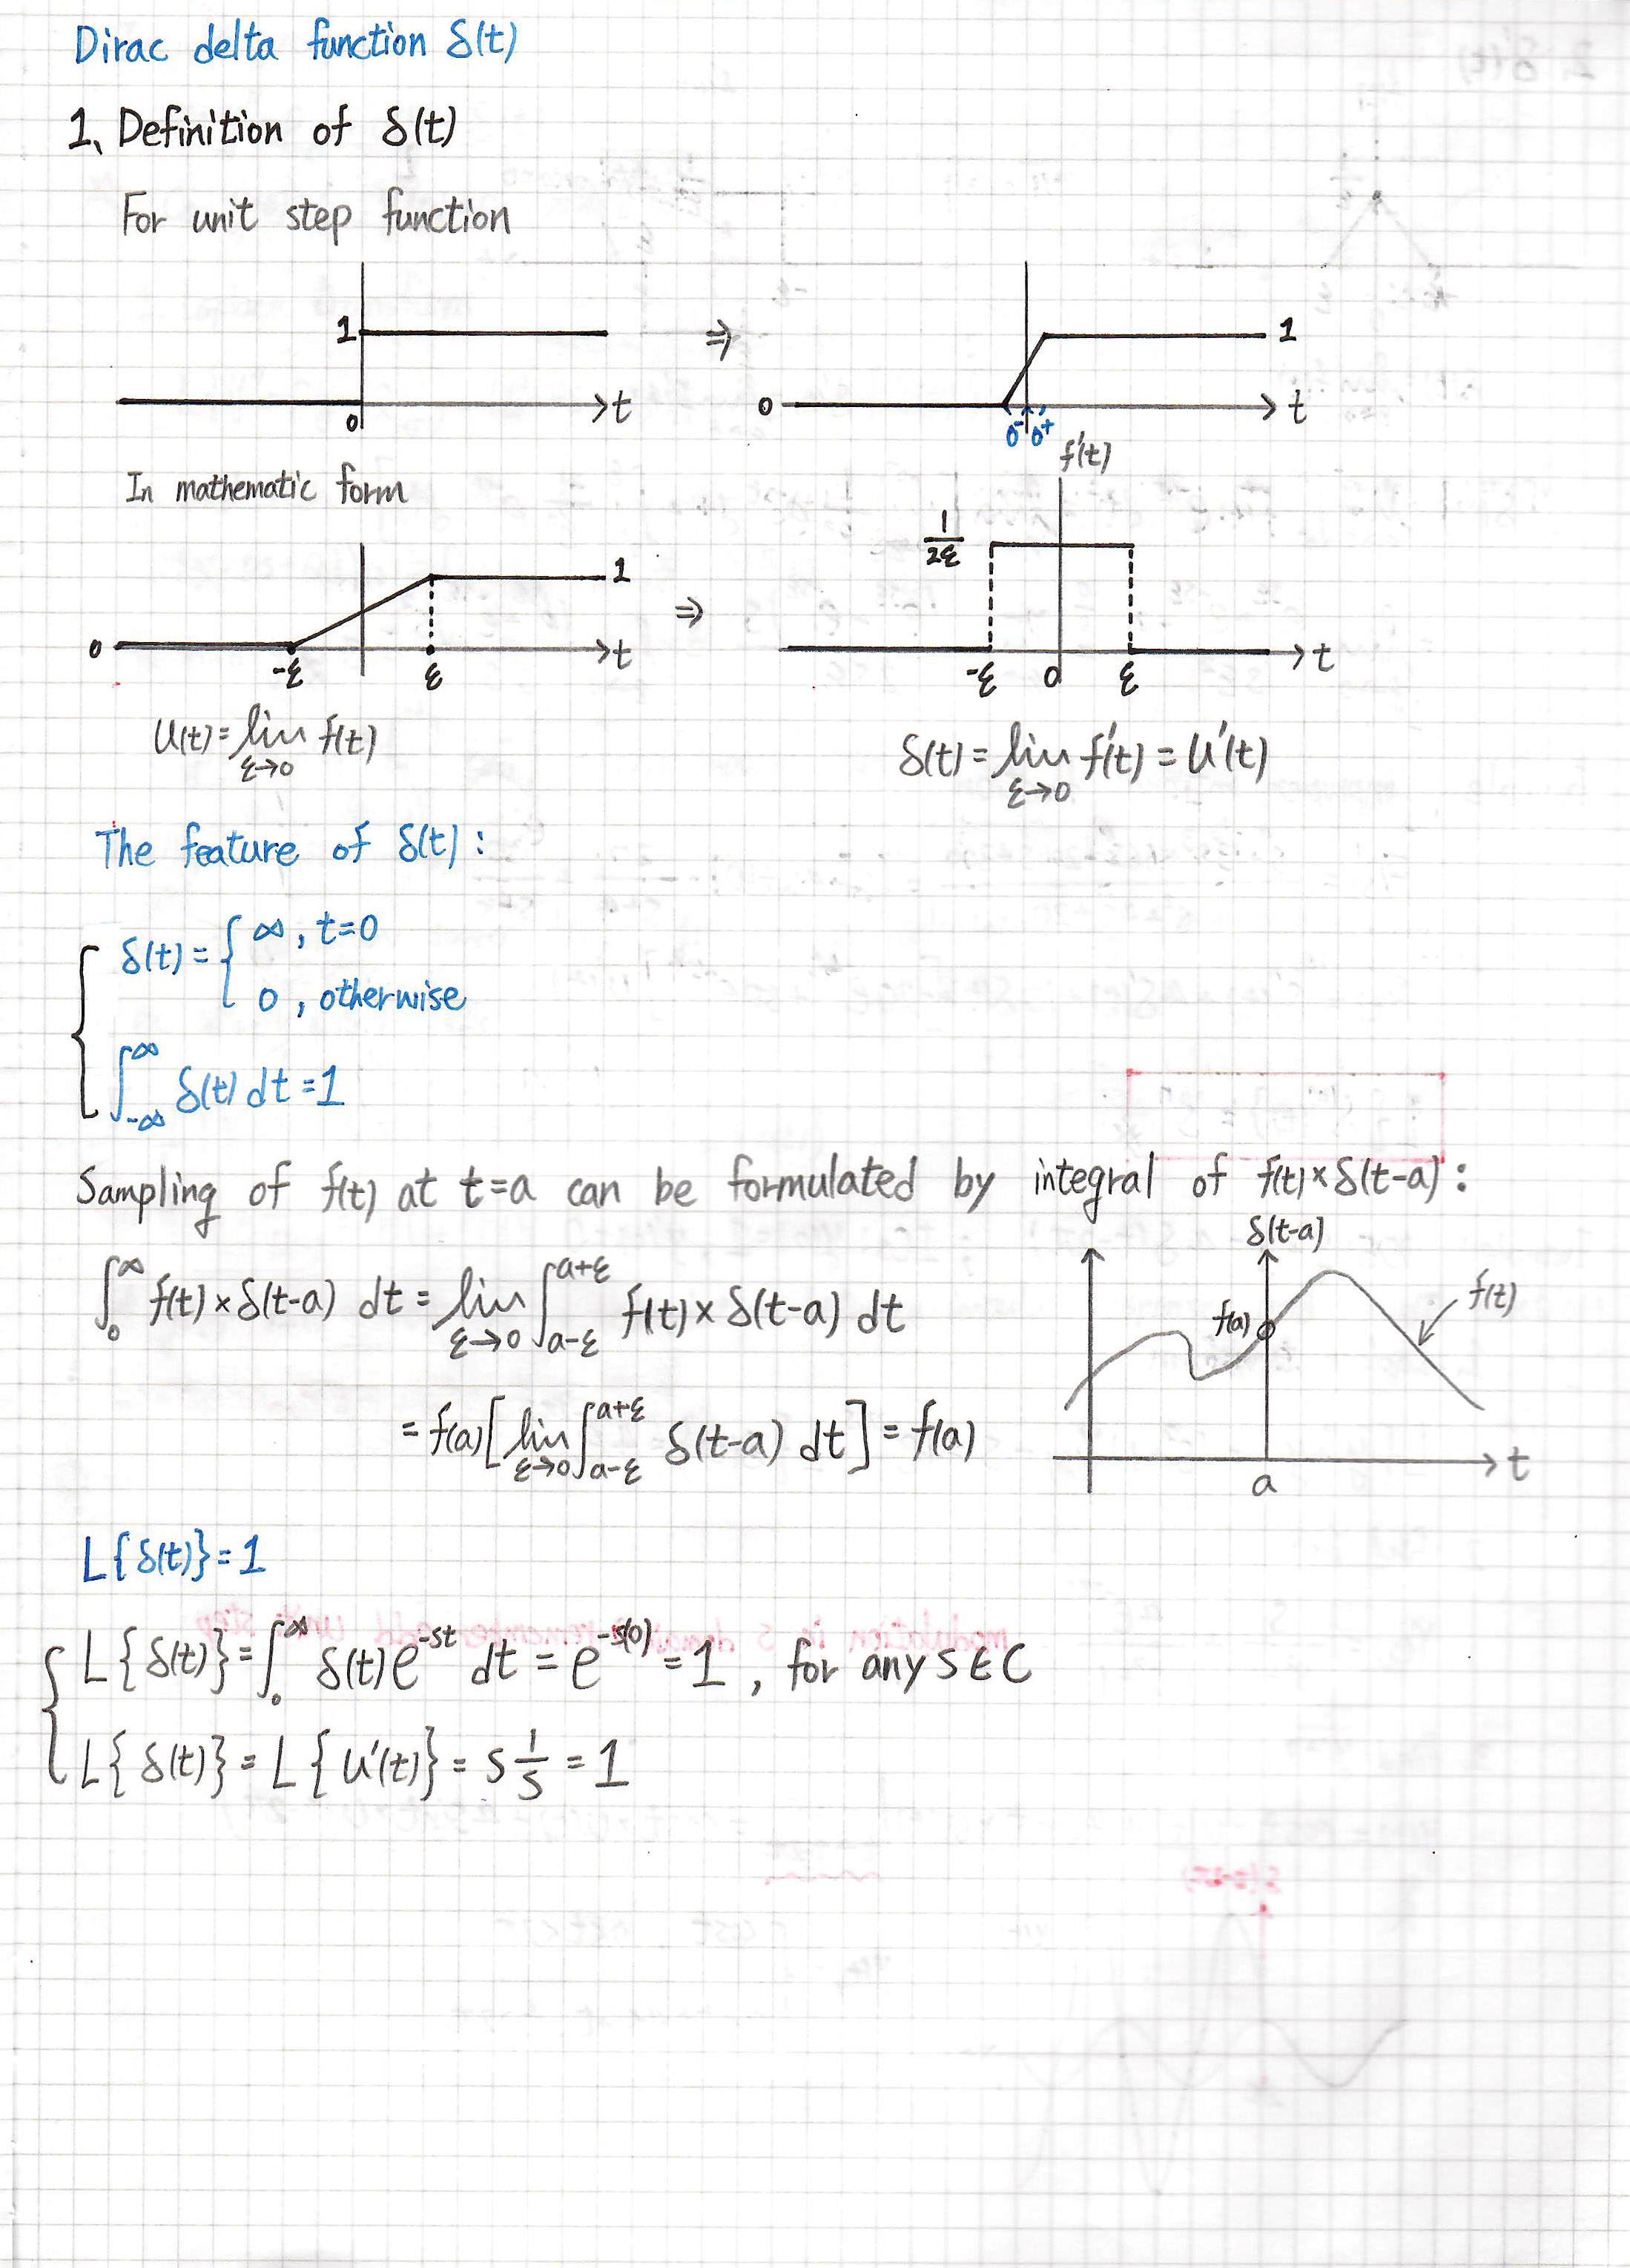 Dirac delta function δ(t)
1、Definition of δ(t)
For unit step function
1
0
t
⇒
0
1
0⁻ 0⁺
t
In mathematic form
0
-ε
ε
1
t
⇒
f'(t)
1/2ε
-ε
0
ε
t
U(t)=lim_{ε→0} f(t)
δ(t)=lim_{ε→0} f'(t)=U'(t)
The feature of δ(t):
δ(t)={ ∞, t=0
0, otherwise
∫_{-∞}^{∞} δ(t) dt=1
Sampling of f(t) at t=a can be formulated by integral of f(t)×δ(t-a):
∫_0^∞ f(t)×δ(t-a) dt=lim_{ε→0} ∫_{a-ε}^{a+ε} f(t)×δ(t-a) dt
=f(a)[lim_{ε→0} ∫_{a-ε}^{a+ε} δ(t-a) dt]=f(a)
δ(t-a)
f(a)
f(t)
a
t
L{δ(t)}=1
L{δ(t)}=∫_0^∞ δ(t)e^{-st} dt=e^{-s(0)}=1, for any s∈C
L{δ(t)}=L{U'(t)}=s 1/s=1